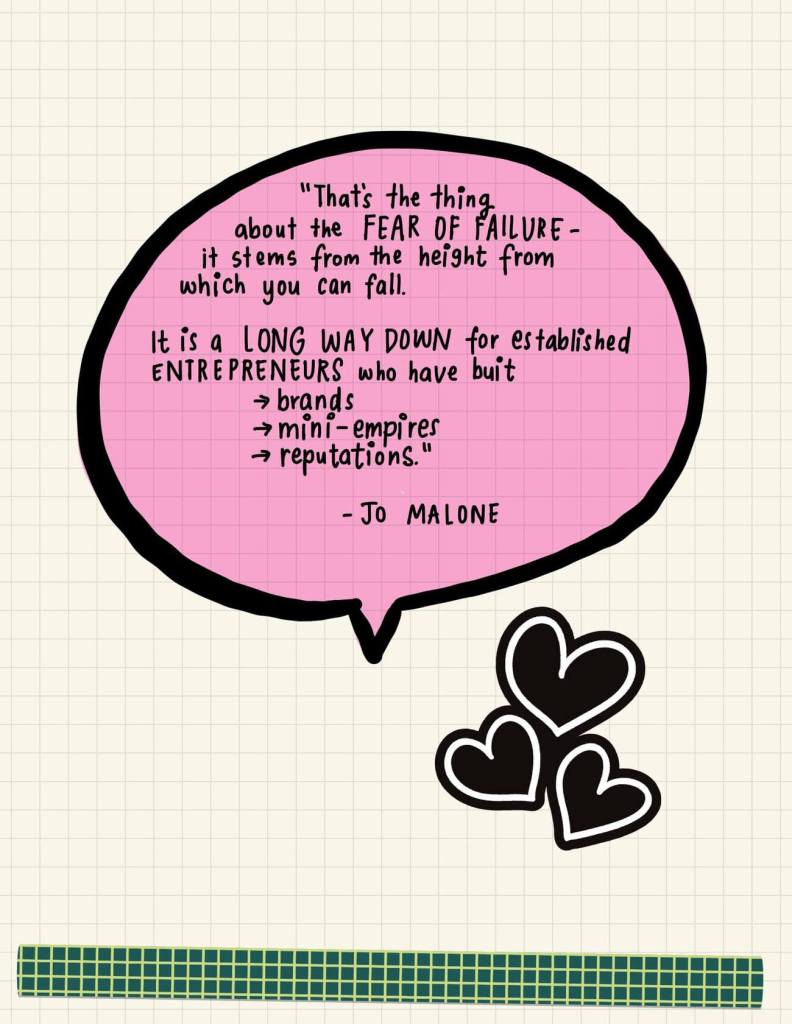 "That's the thing
about the FEAR OF FAILURE -
it stems from the height from
which you can fall.
It is a LONG WAY DOWN for established
ENTREPRENEURS who have buit
→ brands
→ mini-empires
→ reputations."
- JO MALONE